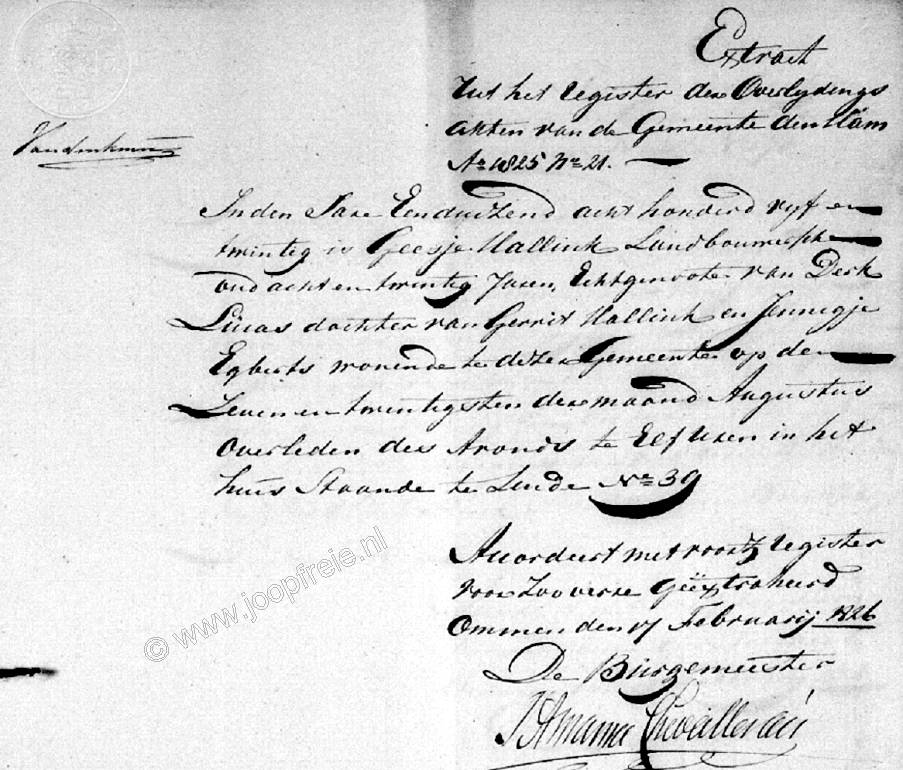 Extract
Uut het register der Overlydings
akten van de Gemeente den Ham
Ao 1825 No 21.
In den Jare Eenduizend acht honderd vyf en
twintig is Geesje Hallink Landbouwersche
oud acht en twintig Jaren, Echtgenoote van Derk
Lucas dochter van Gerrit Hallink en Jennigje
Egberts wonende te dezer Gemeente op de
Zeven en twintigsten der maand Augustus
overleden des Avonds te Elf uren in het
huis Staande te Linde No 39
Accordeert met voorsz register
voor zoo verre Geëxtraheerd
Ommen den 17 Februarij 1826
De Burgemeester
Chevallerau
© www.joopfreie.nl